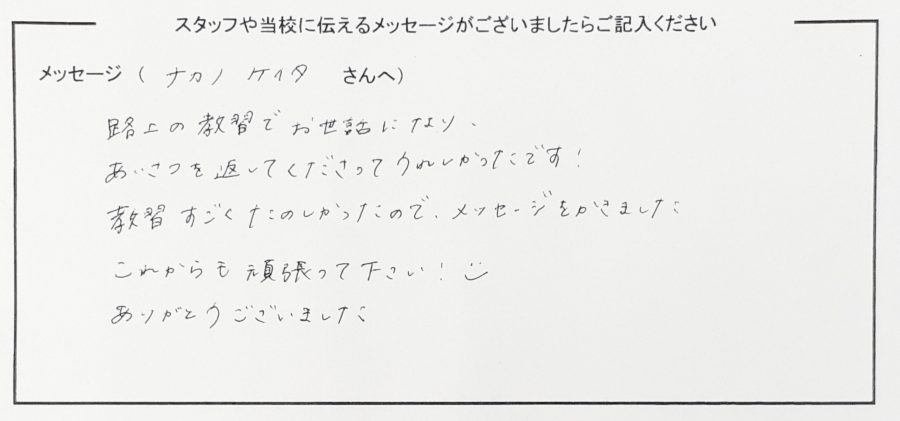 スタッフや当校に伝えるメッセージがございましたらご記入ください
メッセージ ( ナカノ ケイタ さんへ)
路上の教習でお世話になり、
あいさつを返してくださってうれしかったです!
教習すごくたのしかったので、メッセージをかきました
これからも頑張って下さい!
ありがとうございました